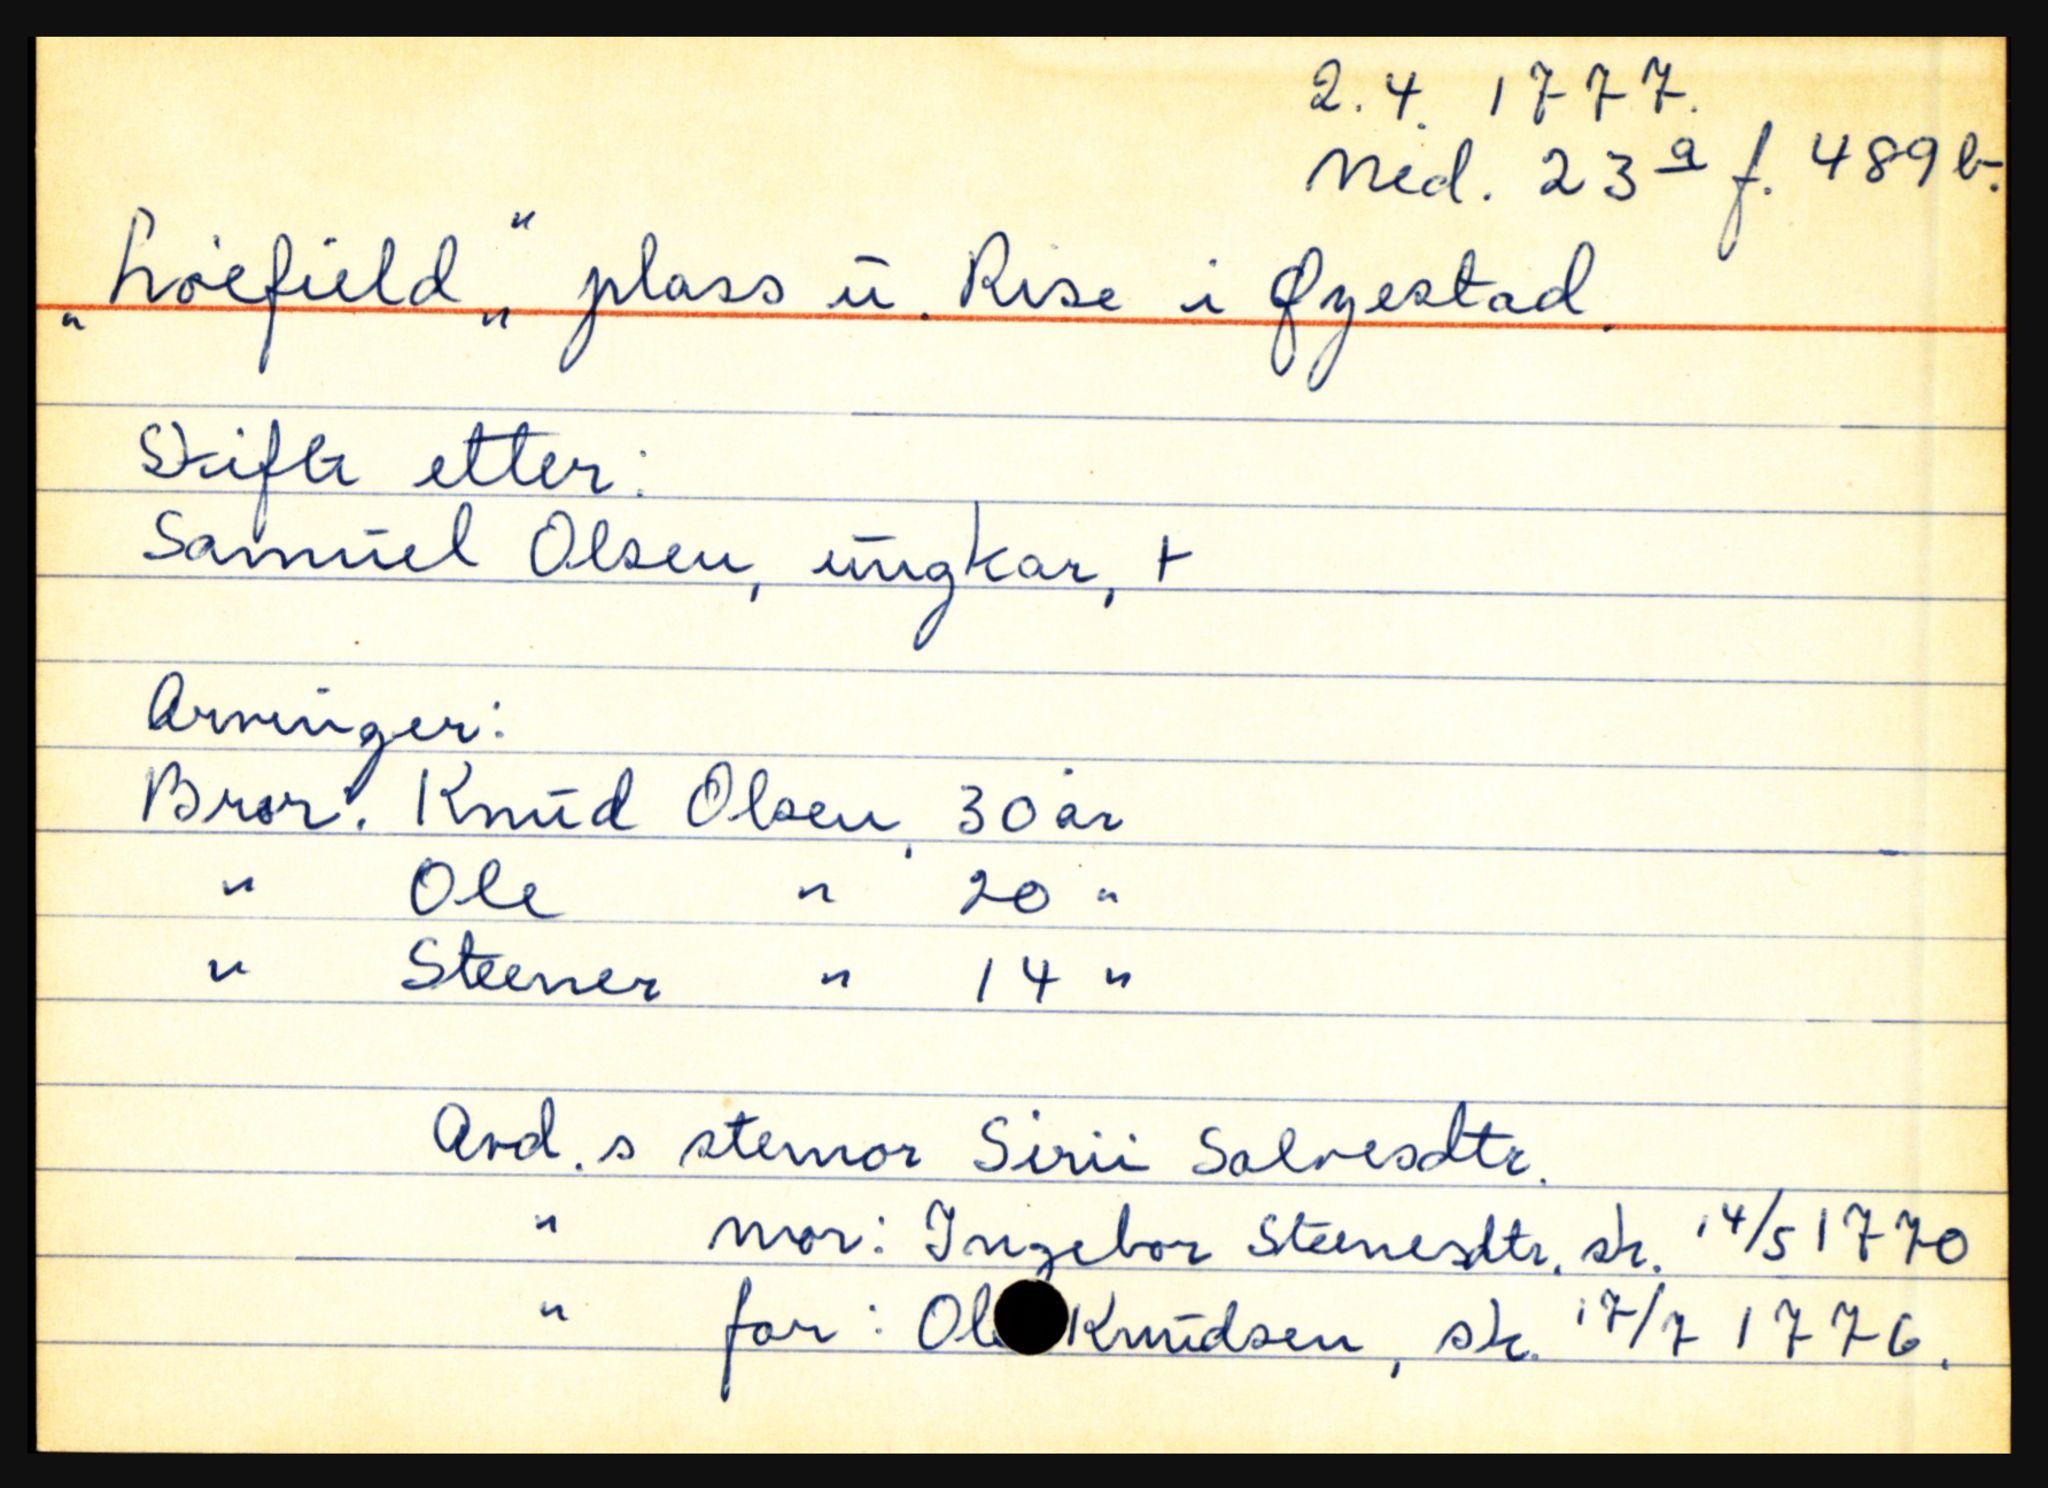 2.4. 1777.
Ned. 23a f. 489b.
"Løefield", plass u. Rise i Øyestad.
Skifte etter:
Samuel Olsen, ungkar, +
Arvinger:
Bror: Knud Olsen, 30 år
" Ole " 20 "
" Steener " 14 "
Avd.s stemor Sirii Salvesdtr.
" mor: Ingebor Steenesdtr. sk. 14/5 1770
" far: Ol Knudsen, sk. 17/7 1776.